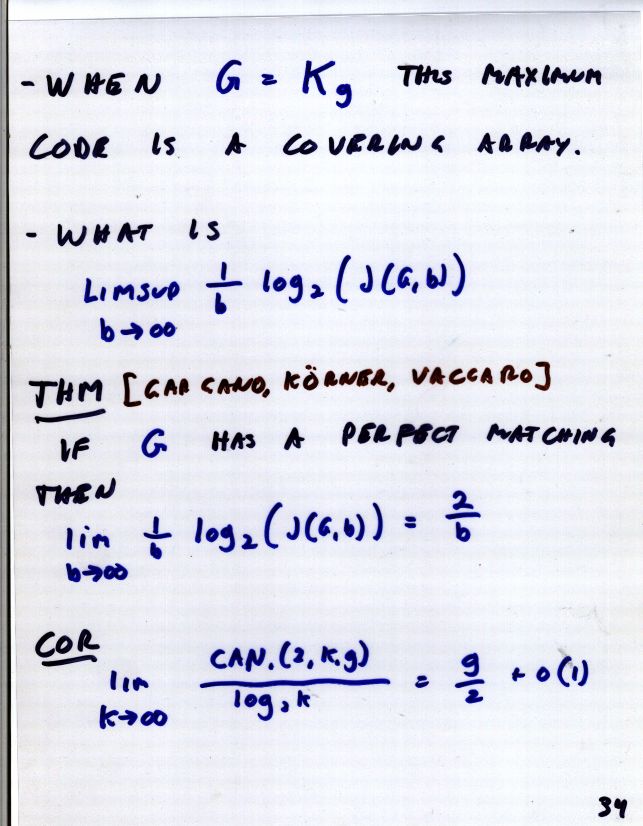 - WHEN G = K_g THIS MAXIMUM
CODE IS A COVERING ARRAY.
- WHAT IS
LIMSUP 1/b log₂ ( J(G,b) )
b→∞
THM [GARGANO, KÖRNER, VACCARO]
IF G HAS A PERFECT MATCHING
THEN
lim 1/b log₂ ( J(G,b) ) = 2/b
b→∞
COR
lim CAN.(2,K,g) / log₂ k = g/2 + o(1)
k→∞
34